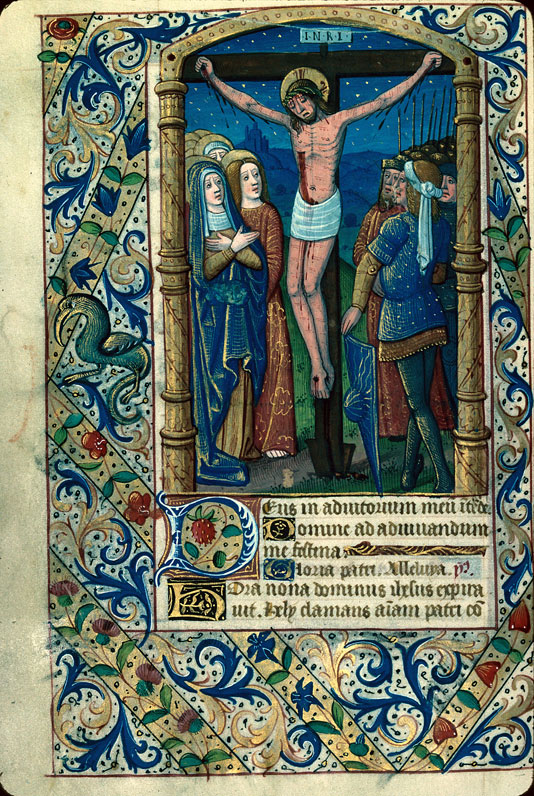 I·N·R·I
Deus in adiutorium meũ ĩtẽde
Domine ad adiuuandum
me festina
Gloria patri. Alleluya. ps.
Hora nona dominus ihesus expira
uit. hely clamans aĩam patri cõ